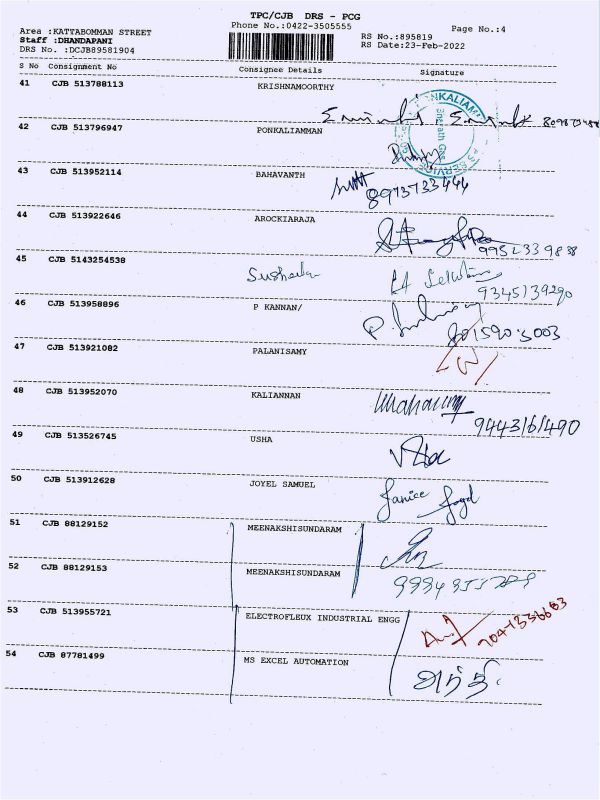 TPC/CJB DRS - PCG
Area :KATTABOMMAN STREET
Phone No.:0422-3505555
Page No.:4
Staff :DHANDAPANI
RS No.:895819
DRS No. :DCJB89581904
RS Date:23-Feb-2022
S No Consignment No Consignee Details Signature
41 CJB 513788113 KRISHNAMOORTHY
42 CJB 513796947 PONKALIAMMAN
43 CJB 513952114 BAHAVANTH
8973733444
44 CJB 513922646 AROCKIARAJA
45 CJB 5143254538
9345139290
46 CJB 513958896 P KANNAN/
47 CJB 513921082 PALANISAMY
48 CJB 513952070 KALIANNAN
9443161490
49 CJB 513526745 USHA
50 CJB 513912628 JOYEL SAMUEL
Janice
51 CJB 88129152 MEENAKSHISUNDARAM
52 CJB 88129153 MEENAKSHISUNDARAM
53 CJB 513955721 ELECTROFLEUX INDUSTRIAL ENGG
54 CJB 87781499 MS EXCEL AUTOMATION